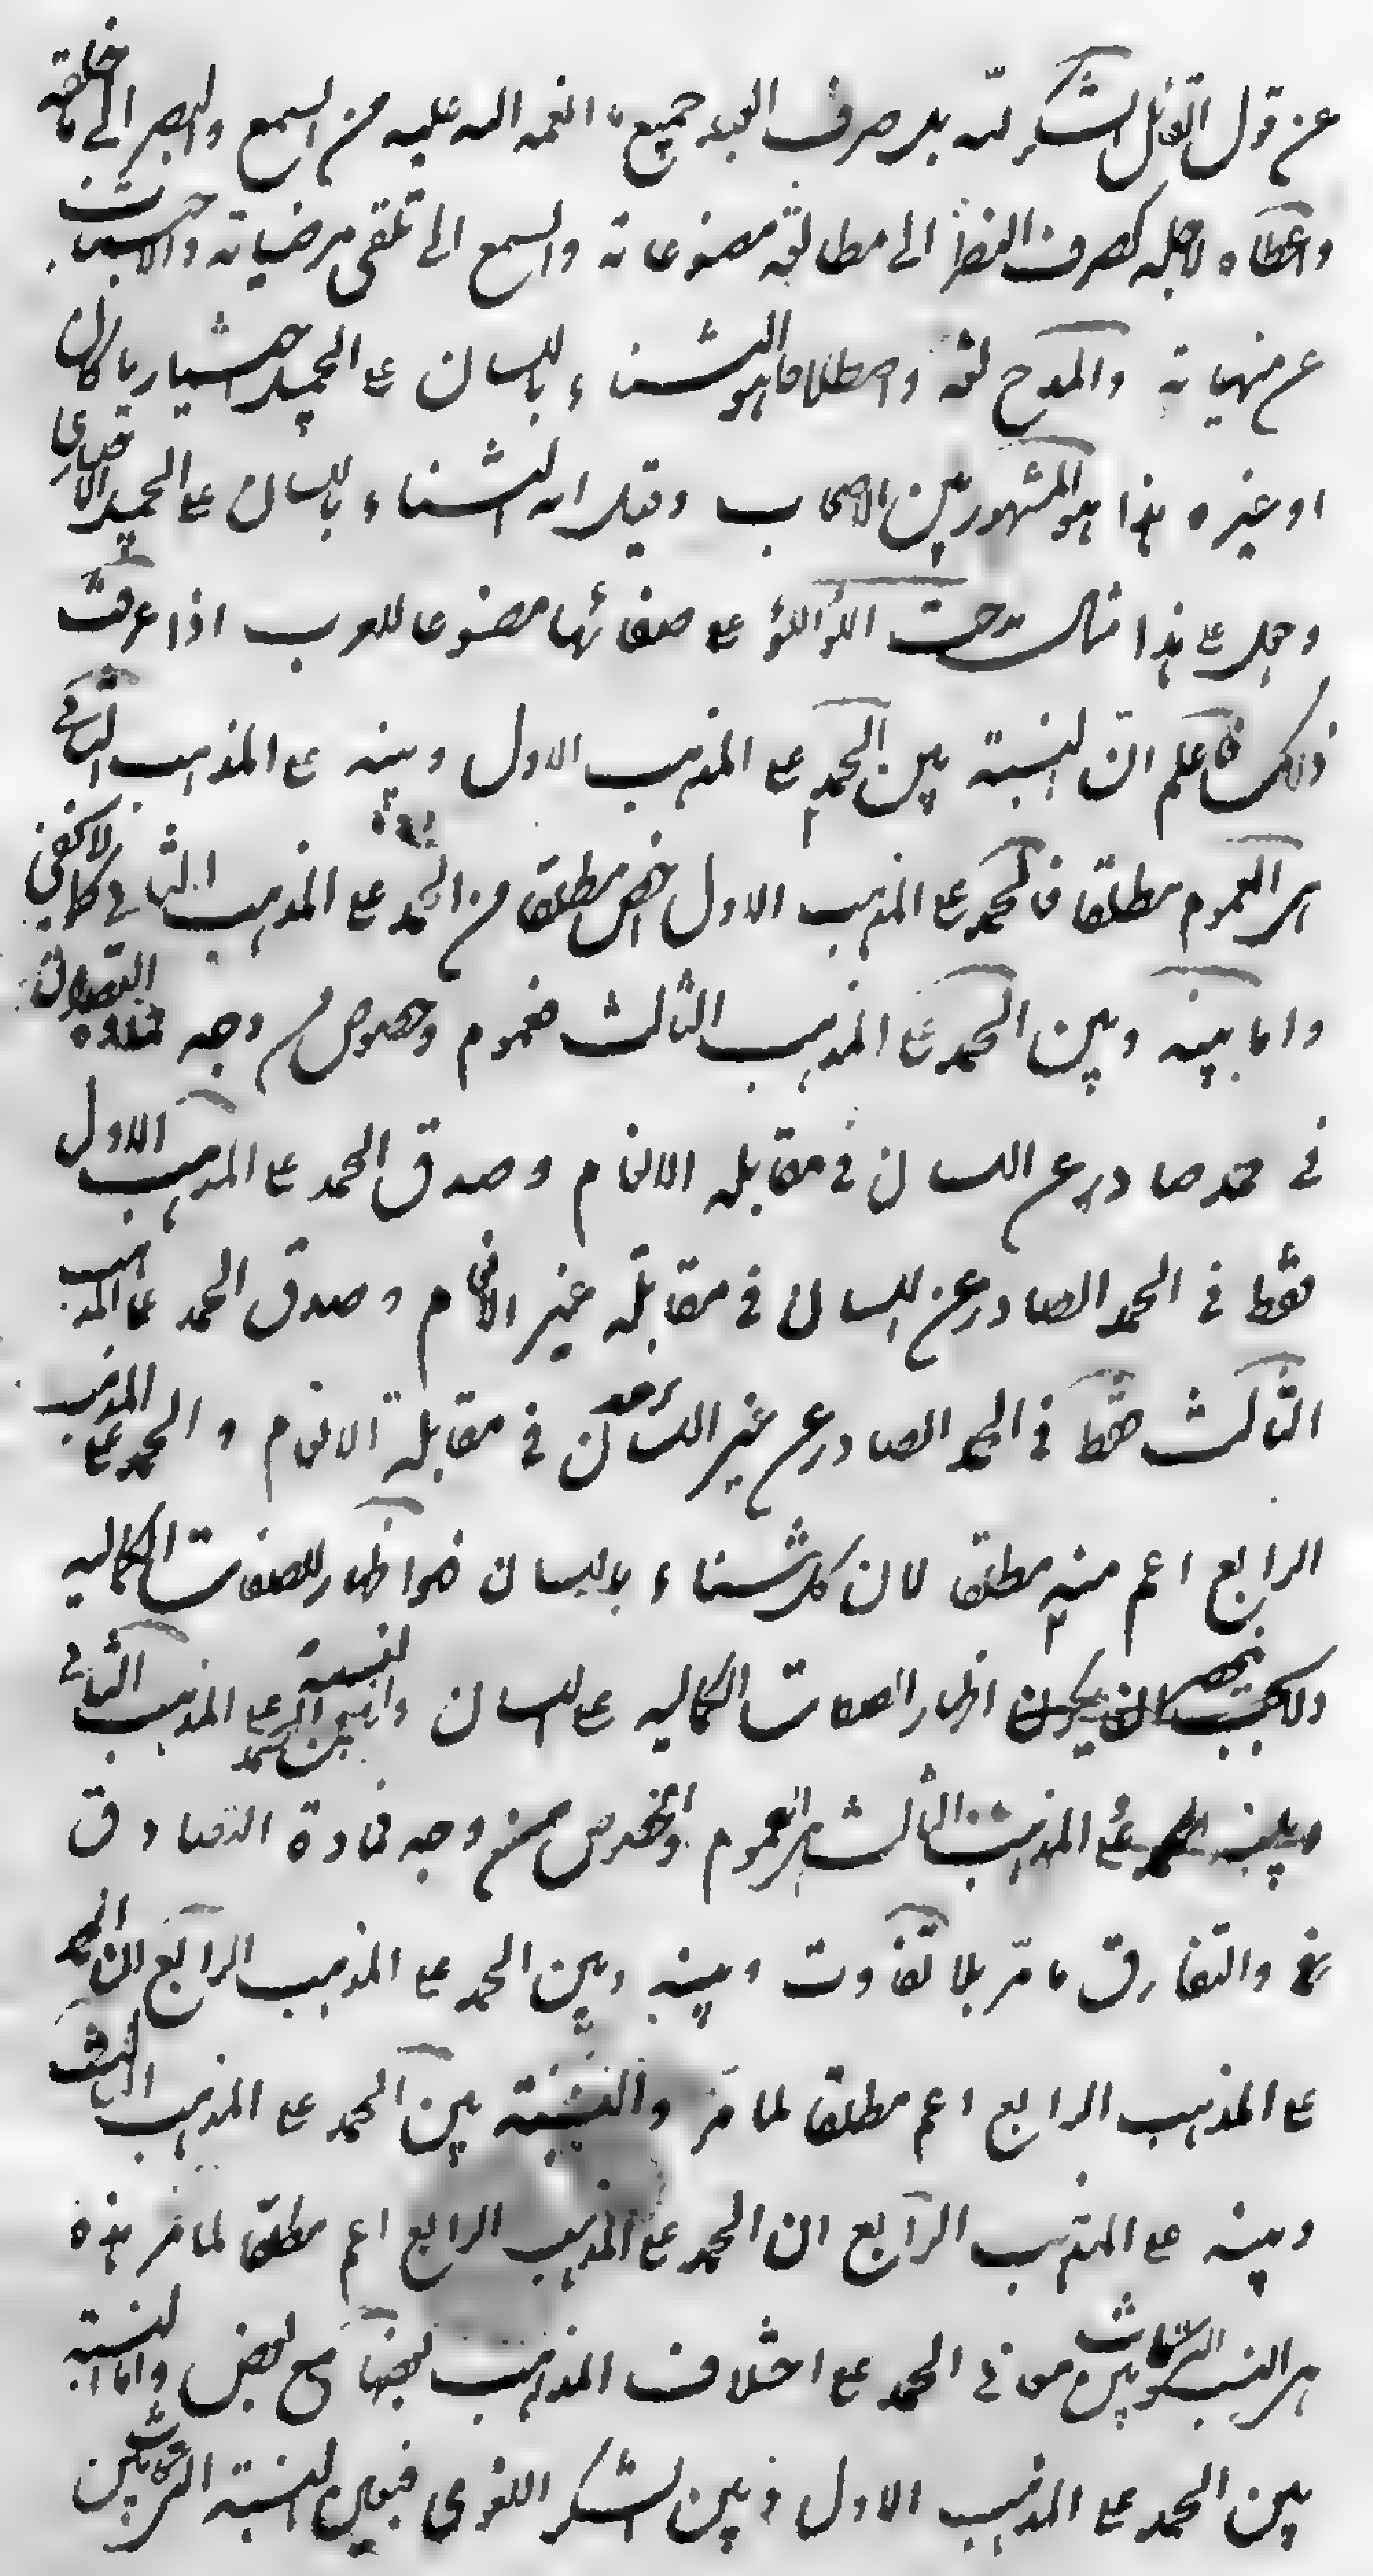 عن قول القائل الشكر لله بل صرف العبد جميع ما انعمه الله عليه من السمع والبصر الى ما خلقه
واعطاه لاجله كصرف النظر الى مطالعة مصنوعاته والسمع الى تلقى مرضياته والاجتناب
عن منهياته والمدح لغة واصطلاحا هو الثناء باللسان على الجميل اختياريا كان
او غيره هذا هو المشهور بين الاصحاب وقيل انه الثناء باللسان على الجميل الاختيارى
وجعل على هذا مثال مدحت اللؤلؤ على صفائها مصنوعا للعرب اذا عرفت
ذلك فاعلم ان النسبة بين الحمد على المذهب الاول وبينه على المذهب الثانى
هى العموم مطلقا فالحمد على المذهب الاول اخص مطلقا من الحمد على المذهب الثانى كما لا يخفى
واما بينه وبين الحمد على المذهب الثالث فعموم وخصوص من وجه فمادة التصادق
فى حمد صادر عن اللسان فى مقابلة الانعام وصدق الحمد على المذهب الاول
فقط فى الحمد الصادر عن اللسان فى مقابلة غير الانعام وصدق الحمد على المذهب
الثالث فقط فى الحمد الصادر عن غير اللسان فى مقابلة الانعام والحمد على المذهب
الرابع اعم منه مطلقا لان كل ثناء باللسان فهو اظهار للصفات الكمالية
ولا يختص اظهار الصفات الكمالية على اللسان والنسبة بين الحمد على المذهب الثانى
وبينه على المذهب الثالث هى العموم والخصوص من وجه فمادة التصادق
والتفارق ما مر بلا تفاوت وبينه وبين الحمد على المذهب الرابع ان الحمد
على المذهب الرابع اعم مطلقا لما مر والنسبة بين الحمد على المذهب الثالث
وبينه على المذهب الرابع ان الحمد على المذهب الرابع اعم مطلقا لما مر هذه
هى النسب التى كانت بين معانى الحمد على اختلاف المذاهب بعضها مع بعض واما النسبة
بين الحمد على المذهب الاول وبين الشكر اللغوى فبعين النسبة التى كانت بين